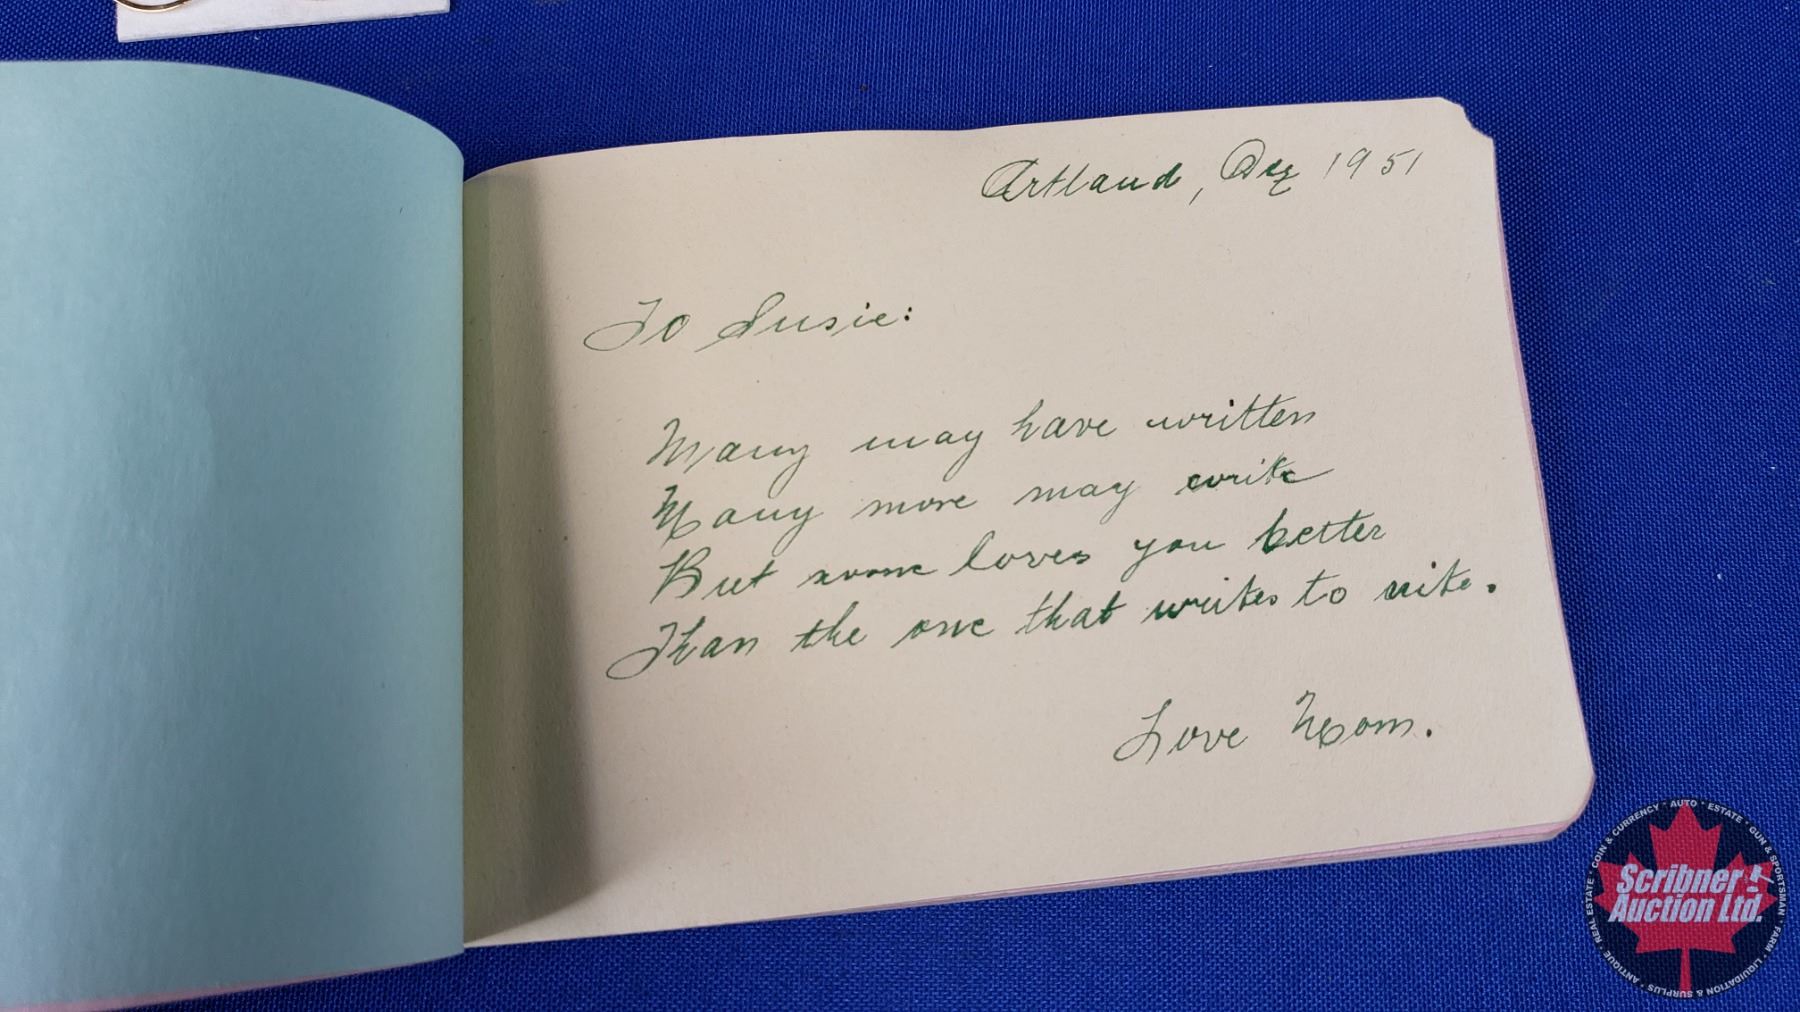 Artland, Dec 1951
To Susie:
Many may have written
Many more may write
But none loves you better
Than the one that writes to nite.
Love Mom.
Scribner
Auction Ltd.
REAL ESTATE · COIN & CURRENCY · AUTO · ESTATE · GUN & SPORTSMAN · FARM · LIQUIDATION & SURPLUS · ANTIQUE ·